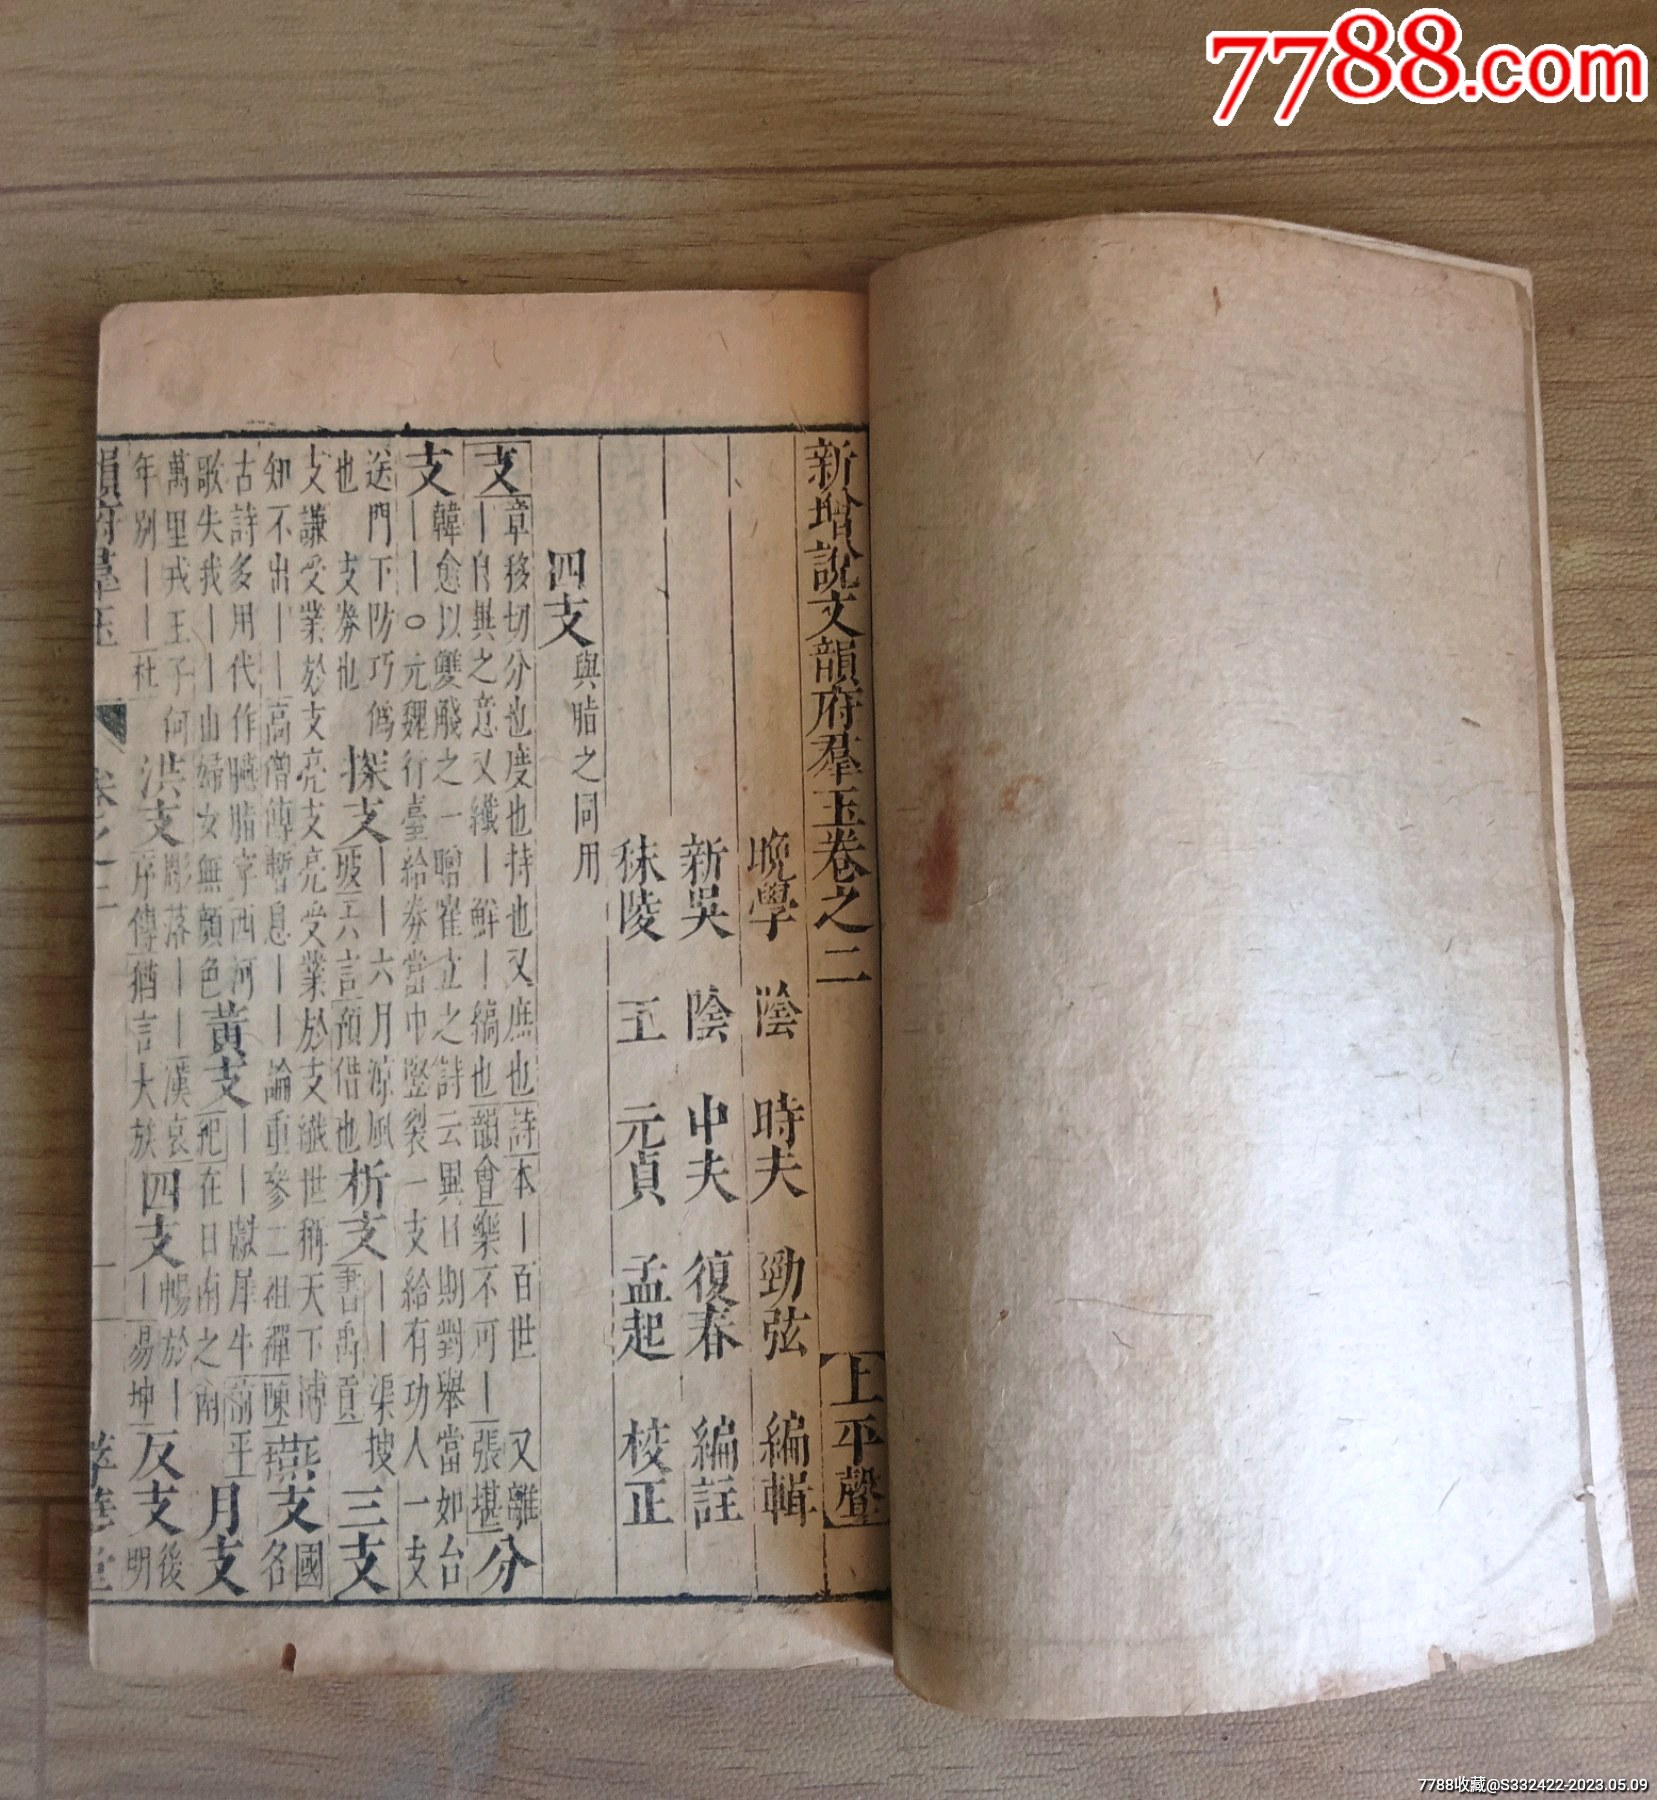 7788.com
新增說文韻府羣玉卷之二 上平聲
晚學 陰 時夫 勁弦 編輯
新吳 陰 中夫 復春 編註
秣陵 王 元貞 孟起 校正
四支 與脂之同用
支 章移切分也度也持也又庶也詩本丨百世 又離
丨自異之意又纖丨鮮丨縞也韻會樂不可丨張堪 分
支 韓愈以雙殘之一贈崔立之詩云異日期對舉當如台
丨丨○元魏行臺給券當中竪裂一支給有功人一支
送門下防巧僞 探支 丨丨六月凉風 析支 丨丨渠搜 三支
也 支券也 坡六言預借也 書禹貢
支謙受業於支亮支亮受業於支讖世稱天下博 國
知不出丨丨高僧傳暫息丨丨論重參二祖禪陳 燕支 名
古詩多用代作臙脂字西河 黃支 丨丨獻犀牛前 平 月支
歌失我丨丨山婦女無顏色 丨丨在日南之南
萬里戎王子何 洪支 彫落丨丨漢哀 四支 暢於丨 反支 後
年別丨丨杜 序傳猶言大族 丨易坤 明
韻府羣玉 卷之二 一 萃華堂
7788收藏@S332422-2023.05.09